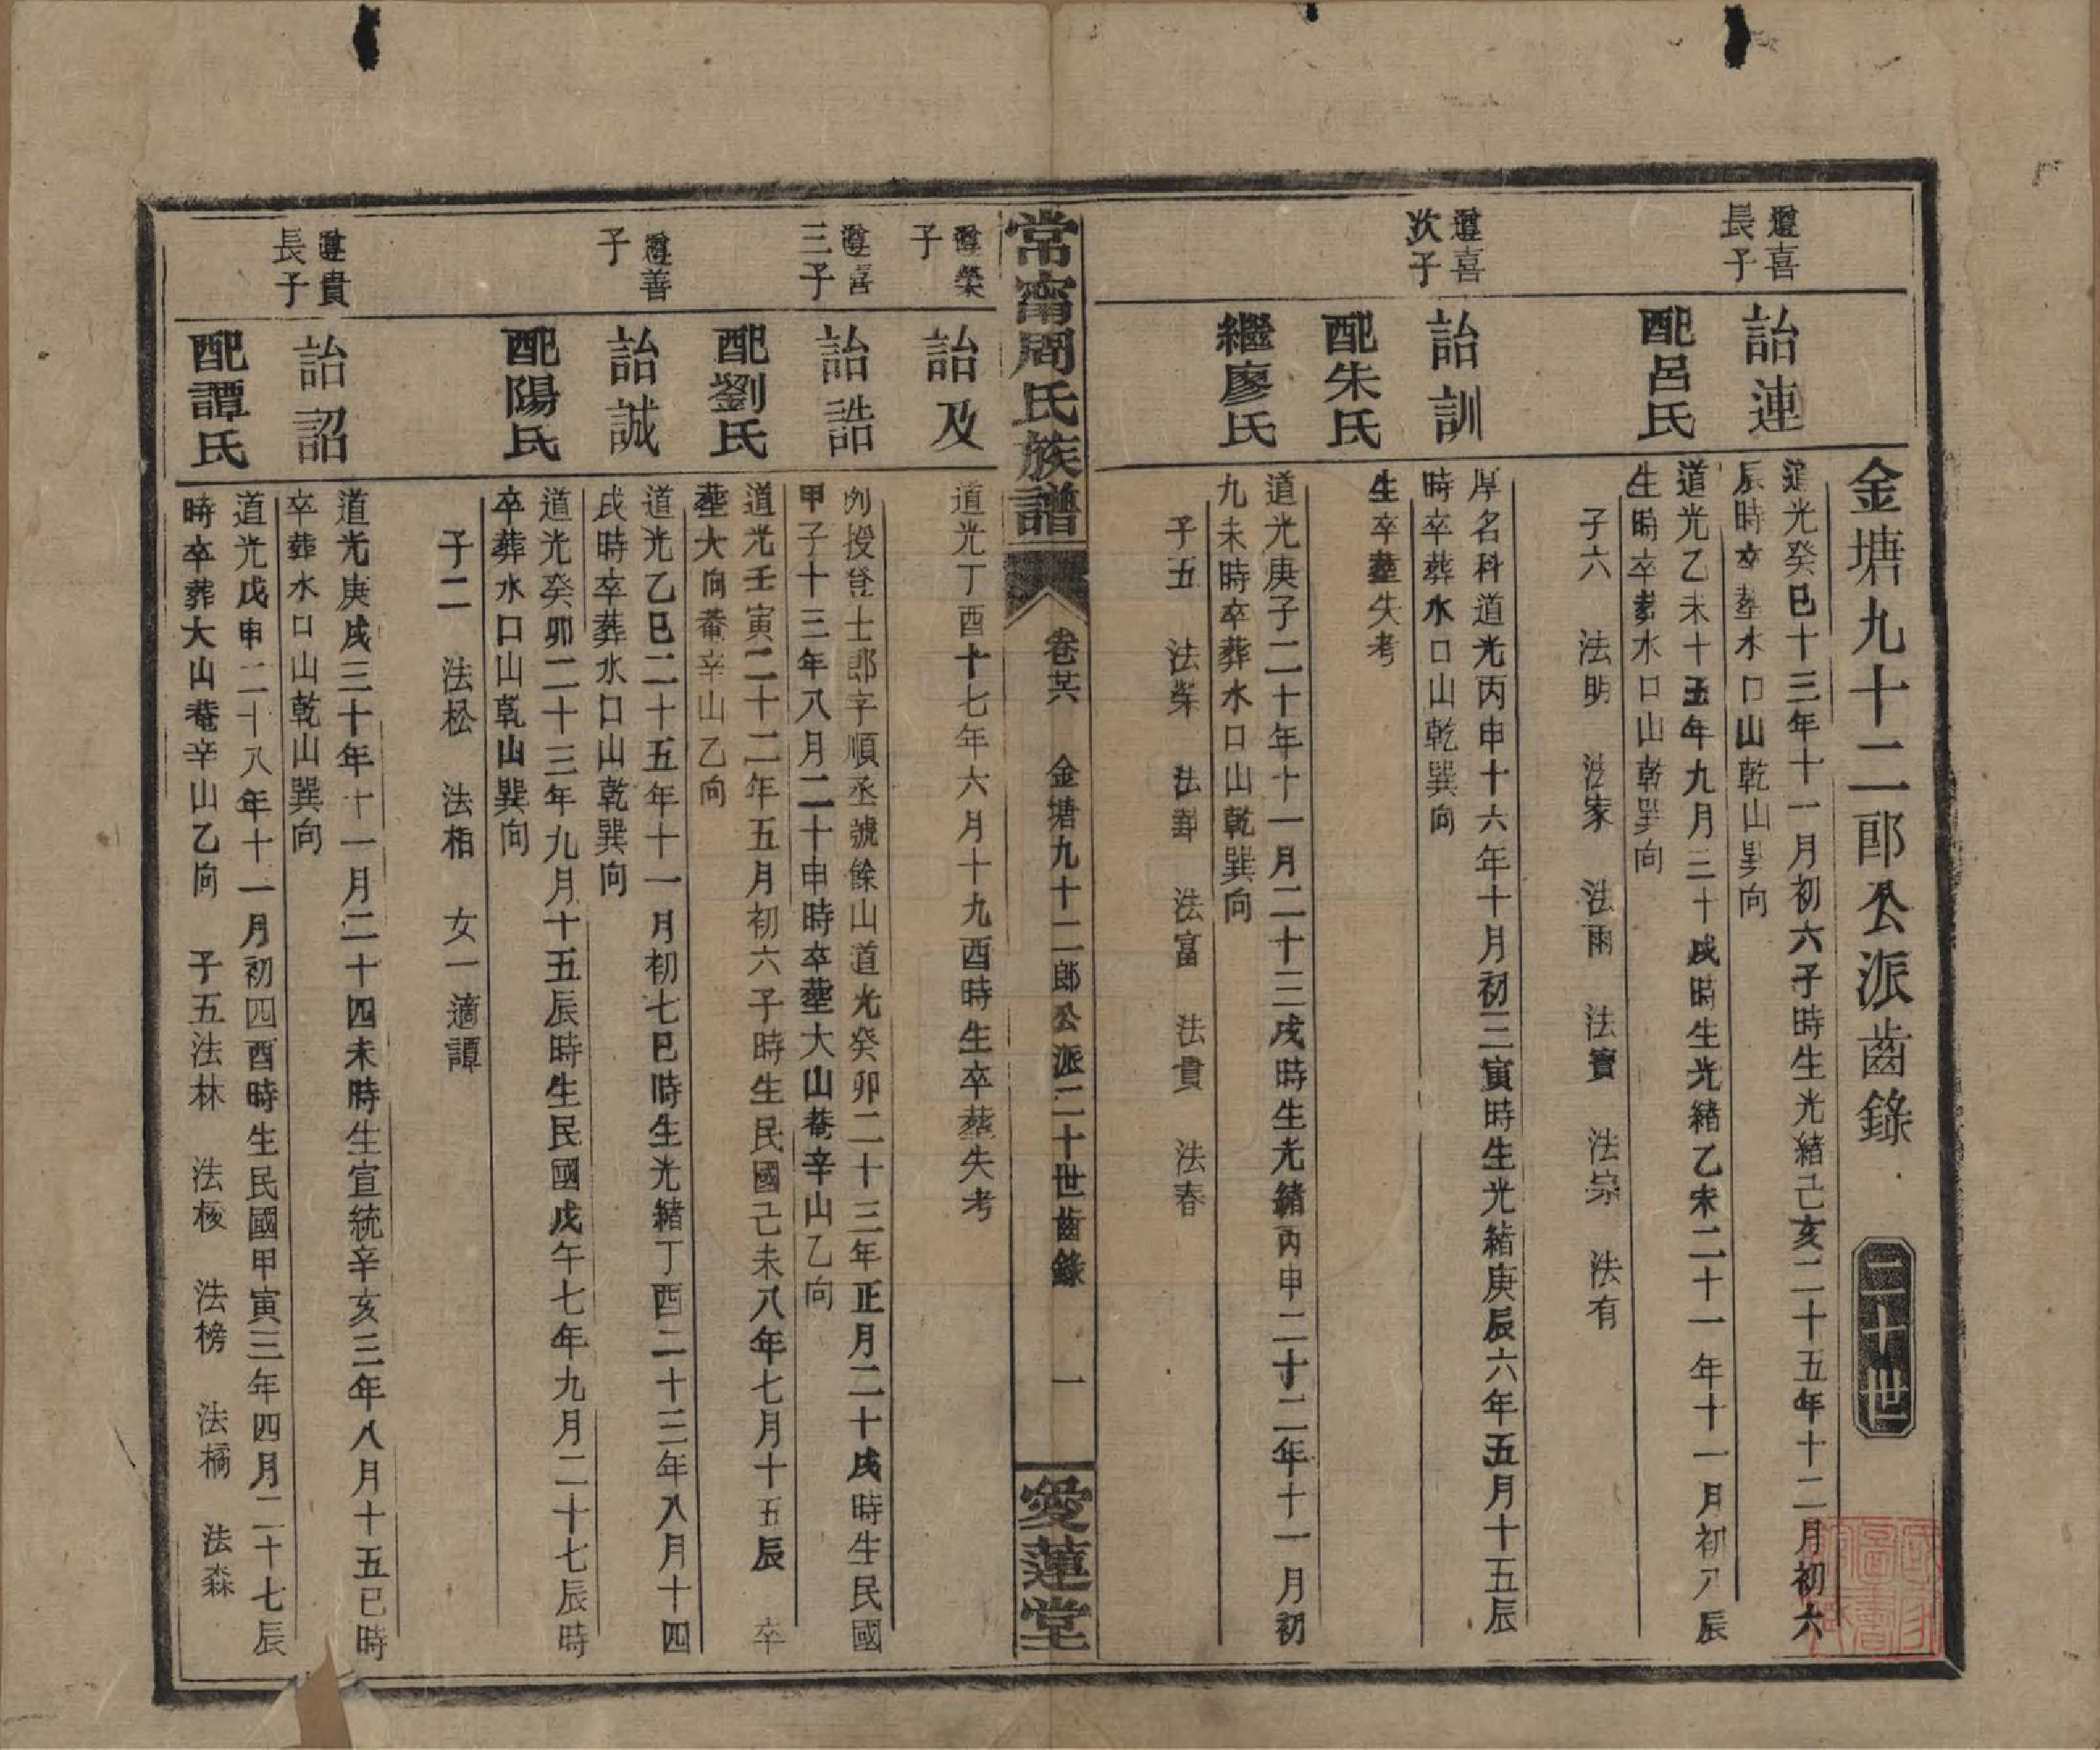 金塘九十二郎公派齒錄
二十世
遵喜
長子
詒連
道光癸巳十三年十一月初六子時生光緒己亥二十五年十二月初六
辰時卒葬水口山乾山巽向
配呂氏
道光乙未十五年九月三十戌時生光緒乙未二十一年十一月初八辰
生時卒葬水口山乾巽向
子六 法明 法家 法雨 法寶 法宗 法有
遵喜
次子
詒訓
厚名科道光丙申十六年十月初三寅時生光緒庚辰六年五月十五辰
時卒葬水口山乾巽向
配朱氏
生卒塟失考
繼廖氏
道光庚子二十年十一月二十三戌時生光緒丙申二十二年十一月初
九未時卒葬水口山乾巽向
子五 法榮 法郵 法富 法貴 法春
常甯周氏族譜
卷廿六 金塘九十二郎公派二十世齒錄 一
愛蓮堂
遵榮
子
詒及
道光丁酉十七年六月十九酉時生卒葬失考
遵喜
三子
詒誥
例授登士郎字順丞號餘山道光癸卯二十三年正月二十戌時生民國
甲子十三年八月二十申時卒塟大山菴辛山乙向
配劉氏
道光壬寅二十二年五月初六子時生民國己未八年七月十五辰 卒
塟大向菴辛山乙向
遵善
子
詒誠
道光乙巳二十五年十一月初七巳時生光緒丁酉二十三年八月十四
戌時卒葬水口山乾巽向
配陽氏
道光癸卯二十三年九月十五辰時生民國戊午七年九月二十七辰時
卒葬水口山乾山巽向
子二 法松 法栢 女一適譚
遵貴
長子
詒詔
道光庚戌三十年十一月二十四未時生宣統辛亥三年八月十五巳時
卒葬水口山乾山巽向
配譚氏
道光戊申二十八年十一月初四酉時生民國甲寅三年四月二十七辰
時卒葬大山菴辛山乙向 子五法林 法棱 法榜 法橘 法森